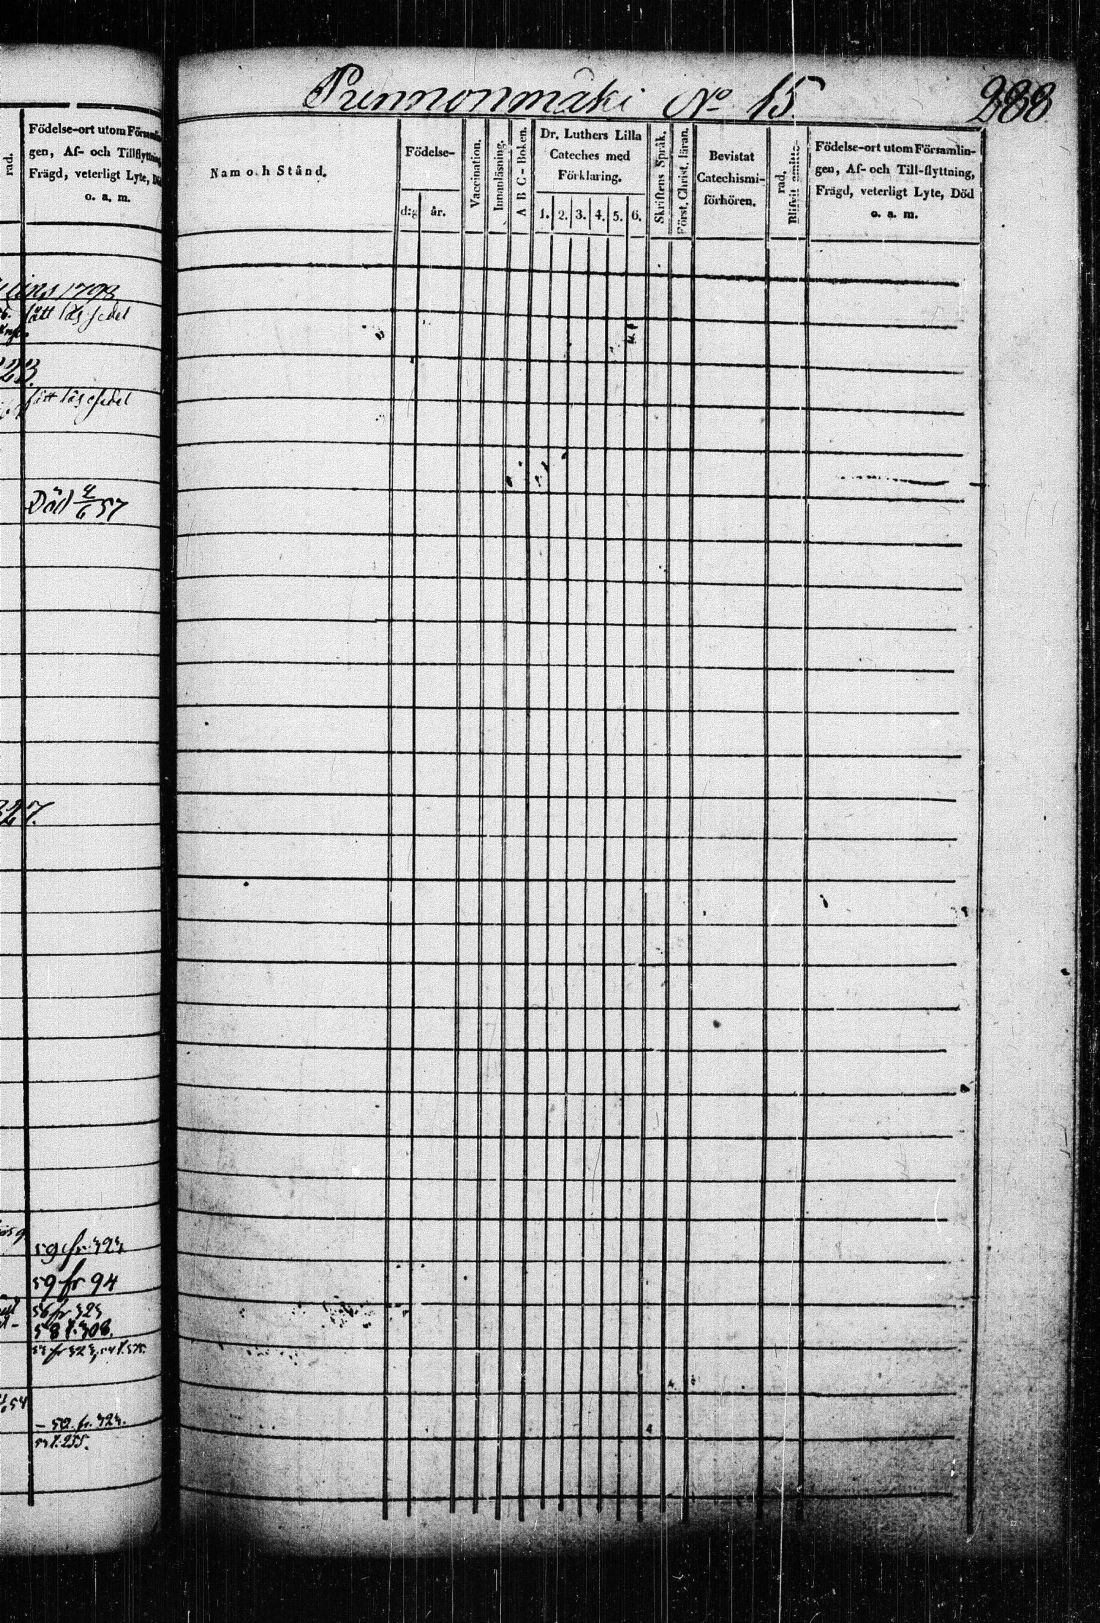 Prennonmäki No 15.
Födelse-ort utom Församlin-
gen, Af- och Tillflyttning,
Frägd, veterligt Lyte, Död
o. a. m.
rad.
1798
fått läs sedel
23.
fått läs sedel
Död 4/6 57
327.
59 fr 323
59 fr 94
56 fr 323
58 t. 308.
54
- 52. fr. 323.
Nam o.h Stånd.
Födelse-
d:g år.
Vaccination.
Innanläsning.
A B C - Boken.
Dr. Luthers Lilla
Cateches med
Förklaring.
1. 2. 3. 4. 5. 6.
Skriftens Språk.
Först. Christ. läran.
Bevistat
Catechismi-
förhören.
rad,
Blifvit smitto-
Födelse-ort utom Församlin-
gen, Af- och Till-flyttning,
Frägd, veterligt Lyte, Död
o. a. m.